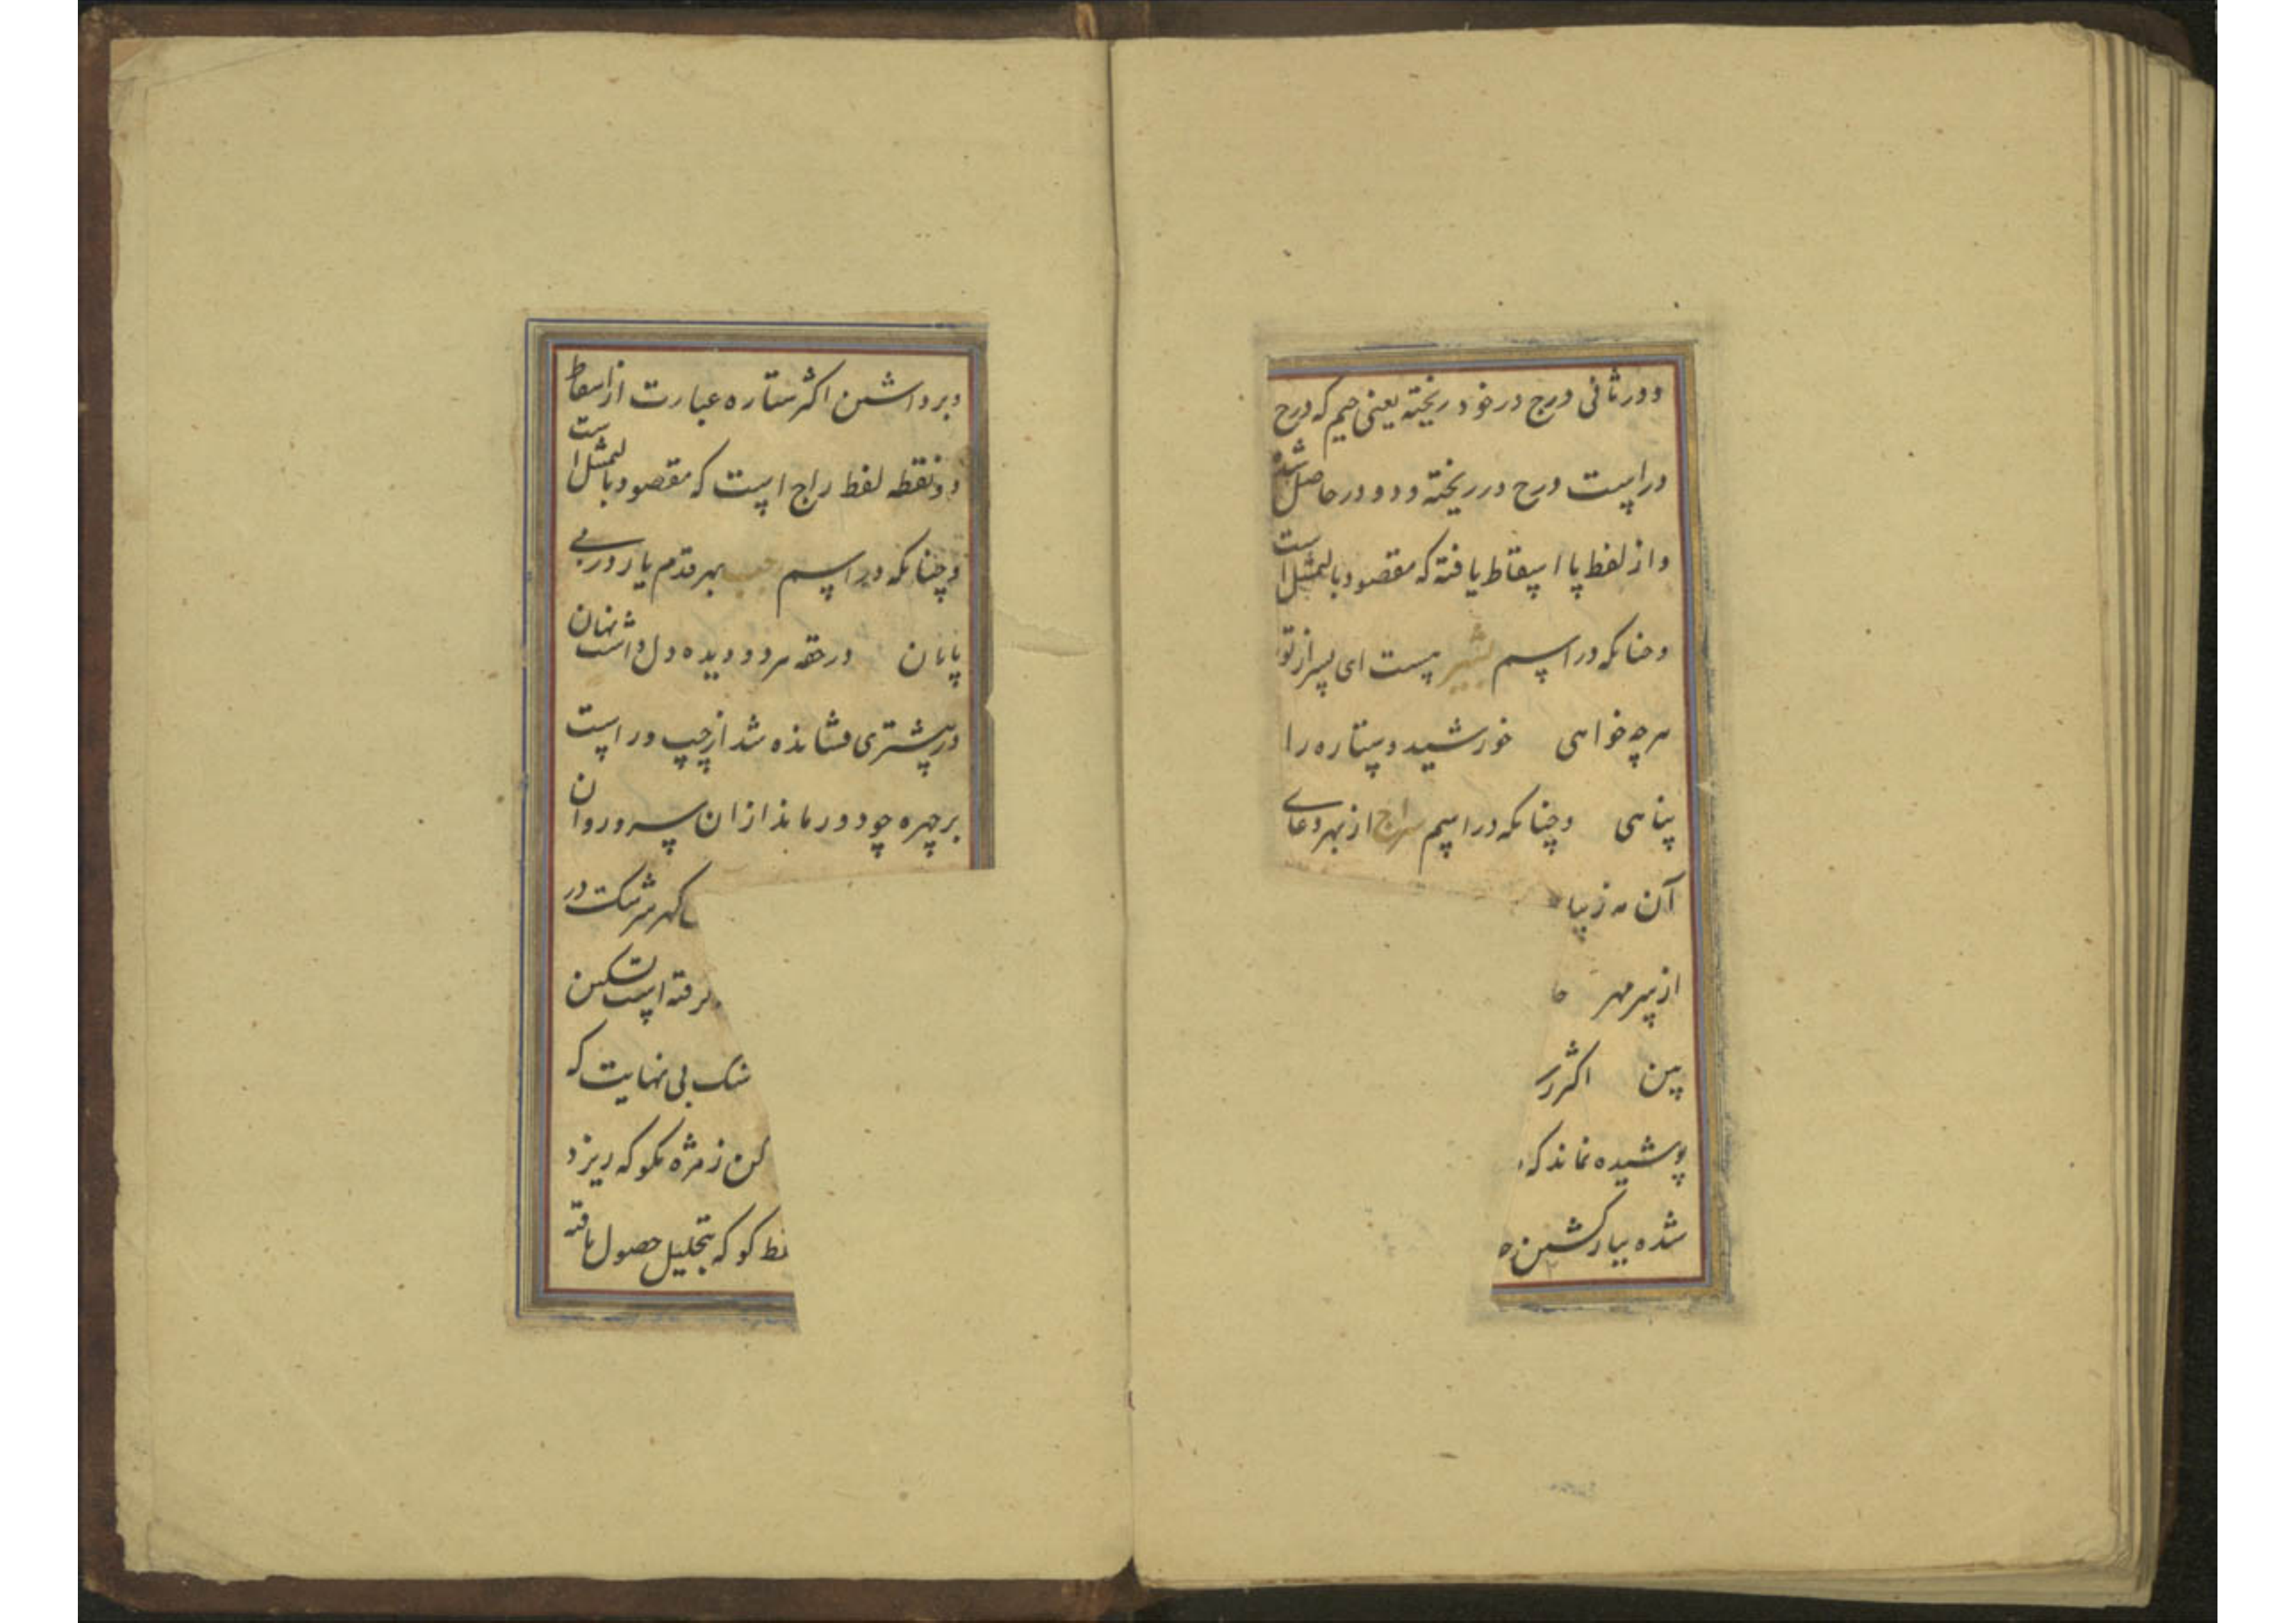 دور ثانی درج در خود ریخته یعنی جیم که درج
در است درج در ریخته و دو در حاصل شده
و از لفظ پا اسقاط یافته که مقصود بالتمثل است
و چنانکه در اسم بشیر نیست ای پسر از تو
هر چه خواهی خورشید و ستاره را
پناهی و چنانکه در اسم سراج از بهر دعای
آن مه ز پیا
از سر مهر
بین اکثر
پوشیده نماند که
شده بیا
و برداشتن اکثر ستاره عبارت از اسقاط
دو نقطه لفظ راج است که مقصود بالتمثل است
و چنانکه در اسم بهر قدم یار در بی
پایان در حقه هر دو دیده دل داشت نهان
در مشتری فشانده شد از چپ و راست
بر چهره چو در ماند از ان سرو روان
گهر سرشک در
گرفته است تسکین
بی نهایت که
کن ز مژه نکو که ریزد
کو که بتحلیل حصول یافته